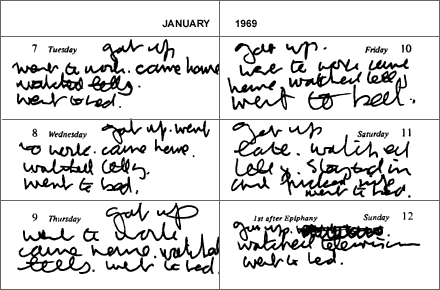 JANUARY 1969
7 Tuesday got up
went to work. came home
watched telly.
went to bed.
8 Wednesday got up. went
to work. came home.
watched telly.
went to bed.
9 Thursday got up
went to work
came home. watched
telly. went to bed.
got up. Friday 10
went to work came
home watched telly
went to bed.
got up Saturday 11
late. watched
telly. stayed in
and
went to bed.
1st after Epiphany Sunday 12
got up.
watched television
went to bed.